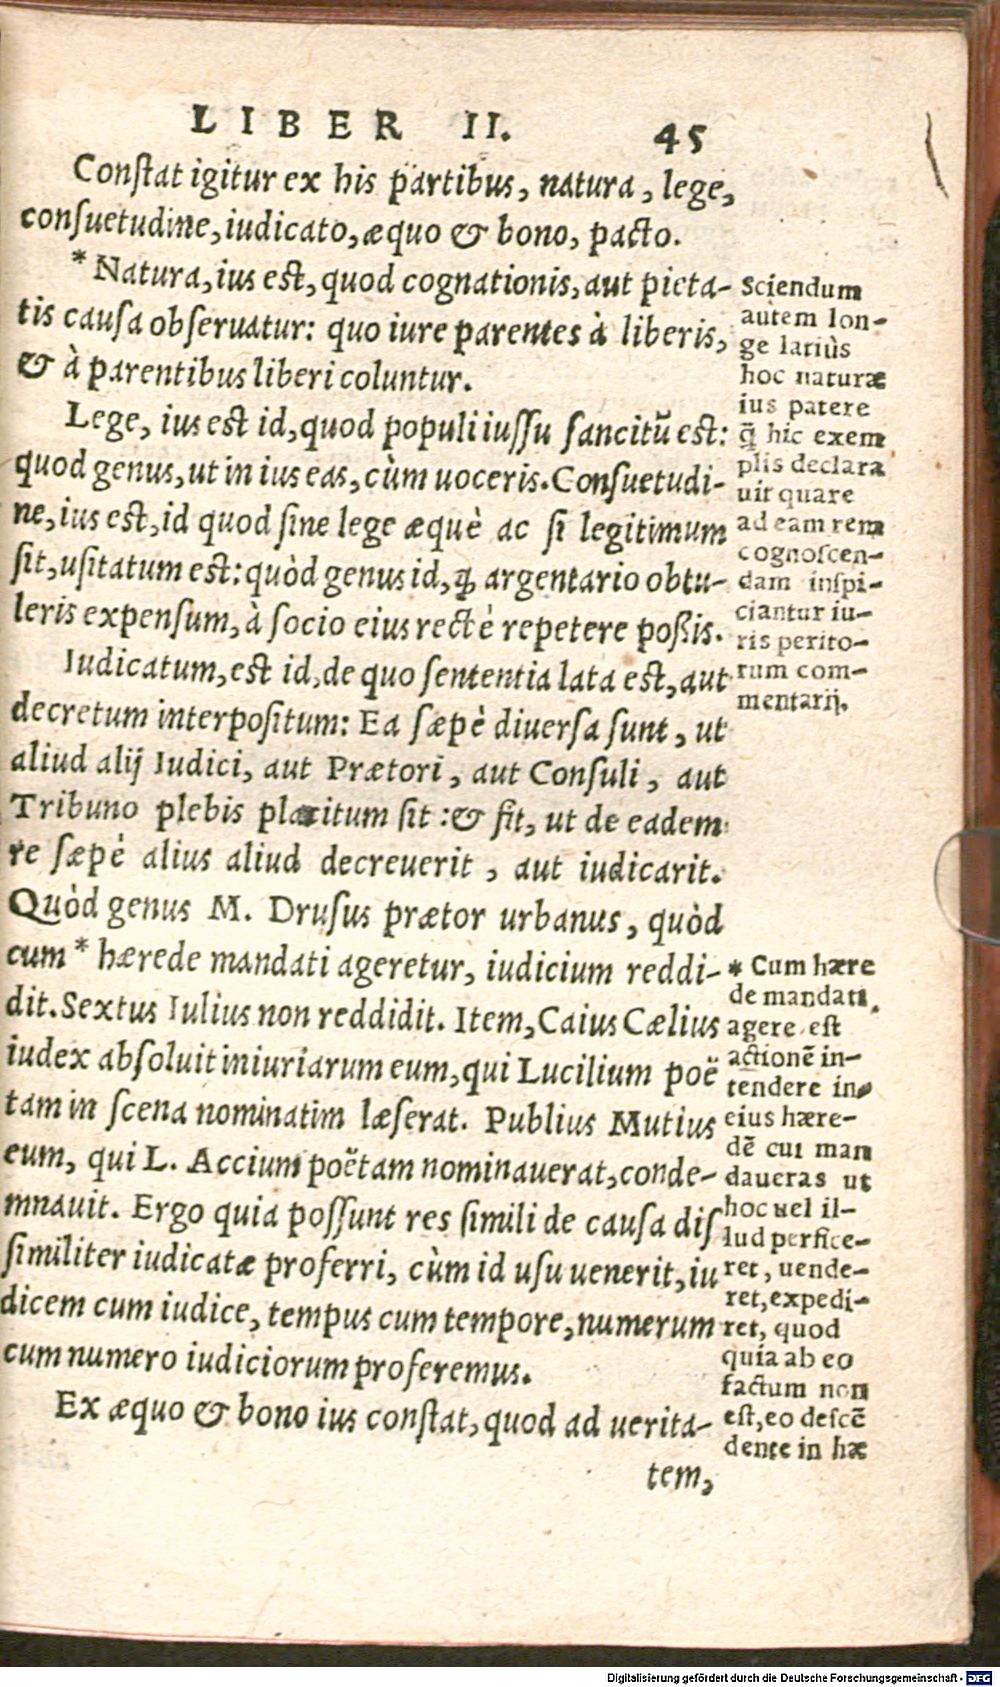 LIBER II. 45
Constat igitur ex his partibus, natura, lege,
consuetudine, iudicato, æquo & bono, pacto.
* Natura, ius est, quod cognationis, aut pieta-
tis causa obseruatur: quo iure parentes à liberis,
& à parentibus liberi coluntur.
Lege, ius est id, quod populi iussu sancitū est:
quod genus, ut in ius eas, cùm uoceris. Consuetudi-
ne, ius est, id quod sine lege æquè ac si legitimum
sit, usitatum est: quòd genus id, qđ argentario obtu-
leris expensum, à socio eius rectè repetere possis.
Iudicatum, est id, de quo sententia lata est, aut
decretum interpositum: Ea sæpè diuersa sunt, ut
aliud alij Iudici, aut Prætori, aut Consuli, aut
Tribuno plebis placitum sit: & fit, ut de eadem
re sæpè alius aliud decreuerit, aut iudicarit.
Quòd genus M. Drusus prætor urbanus, quòd
cum * hærede mandati ageretur, iudicium reddi-
dit. Sextus Iulius non reddidit. Item, Caius Cælius
iudex absoluit iniuriarum eum, qui Lucilium poë
tam in scena nominatim læserat. Publius Mutius
eum, qui L. Accium poëtam nominauerat, conde-
mnauit. Ergo quia possunt res simili de causa dis
similiter iudicatæ proferri, cùm id usu uenerit, iu
dicem cum iudice, tempus cum tempore, numerum
cum numero iudiciorum proferemus.
Ex æquo & bono ius constat, quod ad uerita-
tem,
Sciendum
autem lon-
ge latiùs
hoc naturæ
ius patere
q̃ hic exem
plis declara
uit quare
ad eam rem
cognoscen-
dam inspi-
ciantur iu-
ris perito-
rum com-
mentarij.
* Cum hære
de mandati
agere est
actionē in-
tendere in
eius hære-
dē cui man
daueras ut
hoc uel il-
lud perfice-
ret, uende-
ret, expedi-
ret, quod
quia ab eo
factum non
est, eo descē
dente in hæ
Digitalisierung gefördert durch die Deutsche Forschungsgemeinschaft - DFG